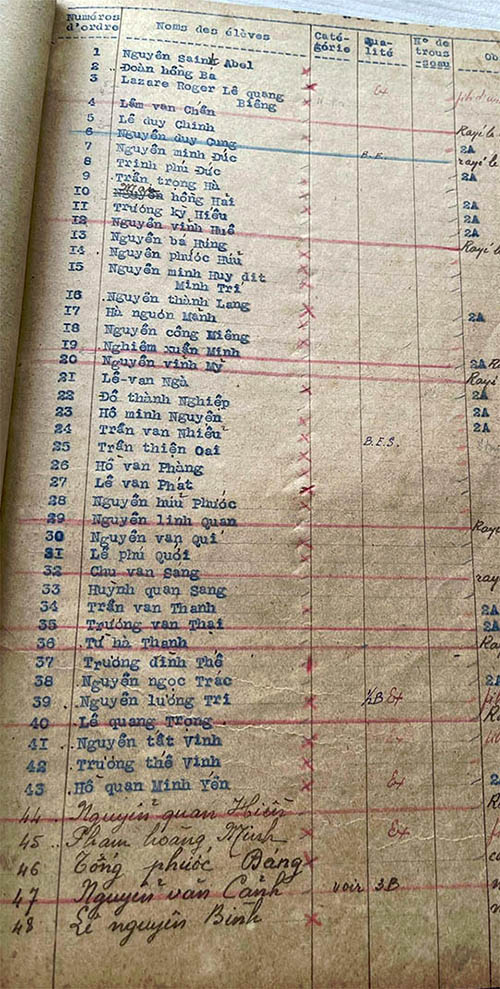 Numéros d'ordre Noms des élèves Caté- gorie Qua- lité N° de trous -seau Ob
1 Nguyên Saint Abel
2 Đoàn hồng Ba
3 Lazare Roger Lê quang Biêng Ex
4 Lâm van Chấn
5 Lê duy Chinh Rayé le
6 Nguyễn duy Cung 2A
7 Nguyễn minh Đức B.E. rayé le
8 Trinh phú Đức 2A
9 Trần trọng Hà
10 hồng Hải 2A
11 Trương kỳ Hiếu 2A
12 Nguyễn vinh Huê 2A
13 Nguyễn bá Hùng Rayé le
14 Nguyễn phước Hữu
15 Nguyễn minh Huy dit Minh Trí
16 Nguyễn thành Lang
17 Hà nguơn Mành 2A
18 Nguyễn công Miêng
19 Nghiêm xuân Minh
20 Nguyễn vinh Mỹ 2A Ra
21 Lê-van Ngà Rayé
22 Đổ thành Nghiệp 2A
23 Hồ minh Nguyên 2A
24 Trần van Nhiều 2A
25 Trần thiện Oai B.E.S.
26 Hồ van Phàng
27 Lê van Phát
28 Nguyễn hữu Phước
29 Nguyễn linh Quan Rayé
30 Nguyễn van Quí
31 Lê phú Quới
32 Chu van Sáng raye
33 Huỳnh quan Sang
34 Trần van Thanh 2A
35 Trương van Thai 2A
36 Từ hà Thanh Ray
37 Trương đình Thê
38 Nguyễn ngọc Trác 2A
39 Nguyễn lương Tri ½B Ex
40 Lê quang Trọng
41 Nguyễn tất Vinh
42 Trương thế Vinh
43 Hồ quan Minh Yến Ex 2
44 Nguyễn quan Hiền
45 Pham hoàng Minh Ex
46 Tống phước Đang
47 Nguyễn văn Cảnh voir 3B
48 Lê nguyên Bình